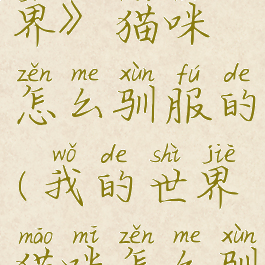 界》 猫咪
zěn me xùn fú de
怎么驯服的
wǒ de shì jiè
(我的世界
māo mī zěn me xùn
猫咪怎么驯